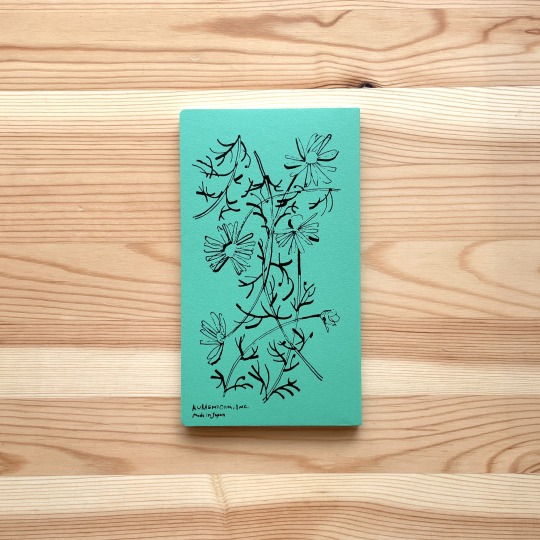 KURASHICOM, INC.
Made in Japan